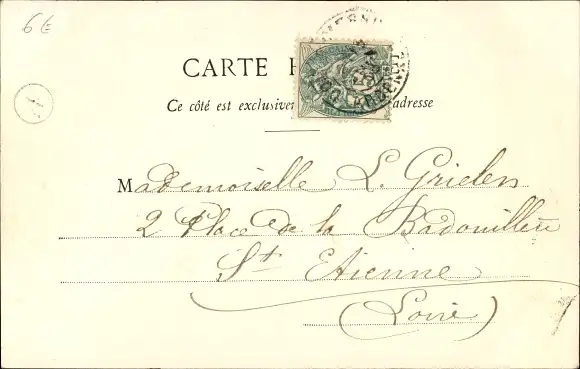 6€
CARTE P
Ce côté est exclusiver adresse
Mademoiselle L. Grielens
2 Place de la Badouillère
St Etienne
(Loire)